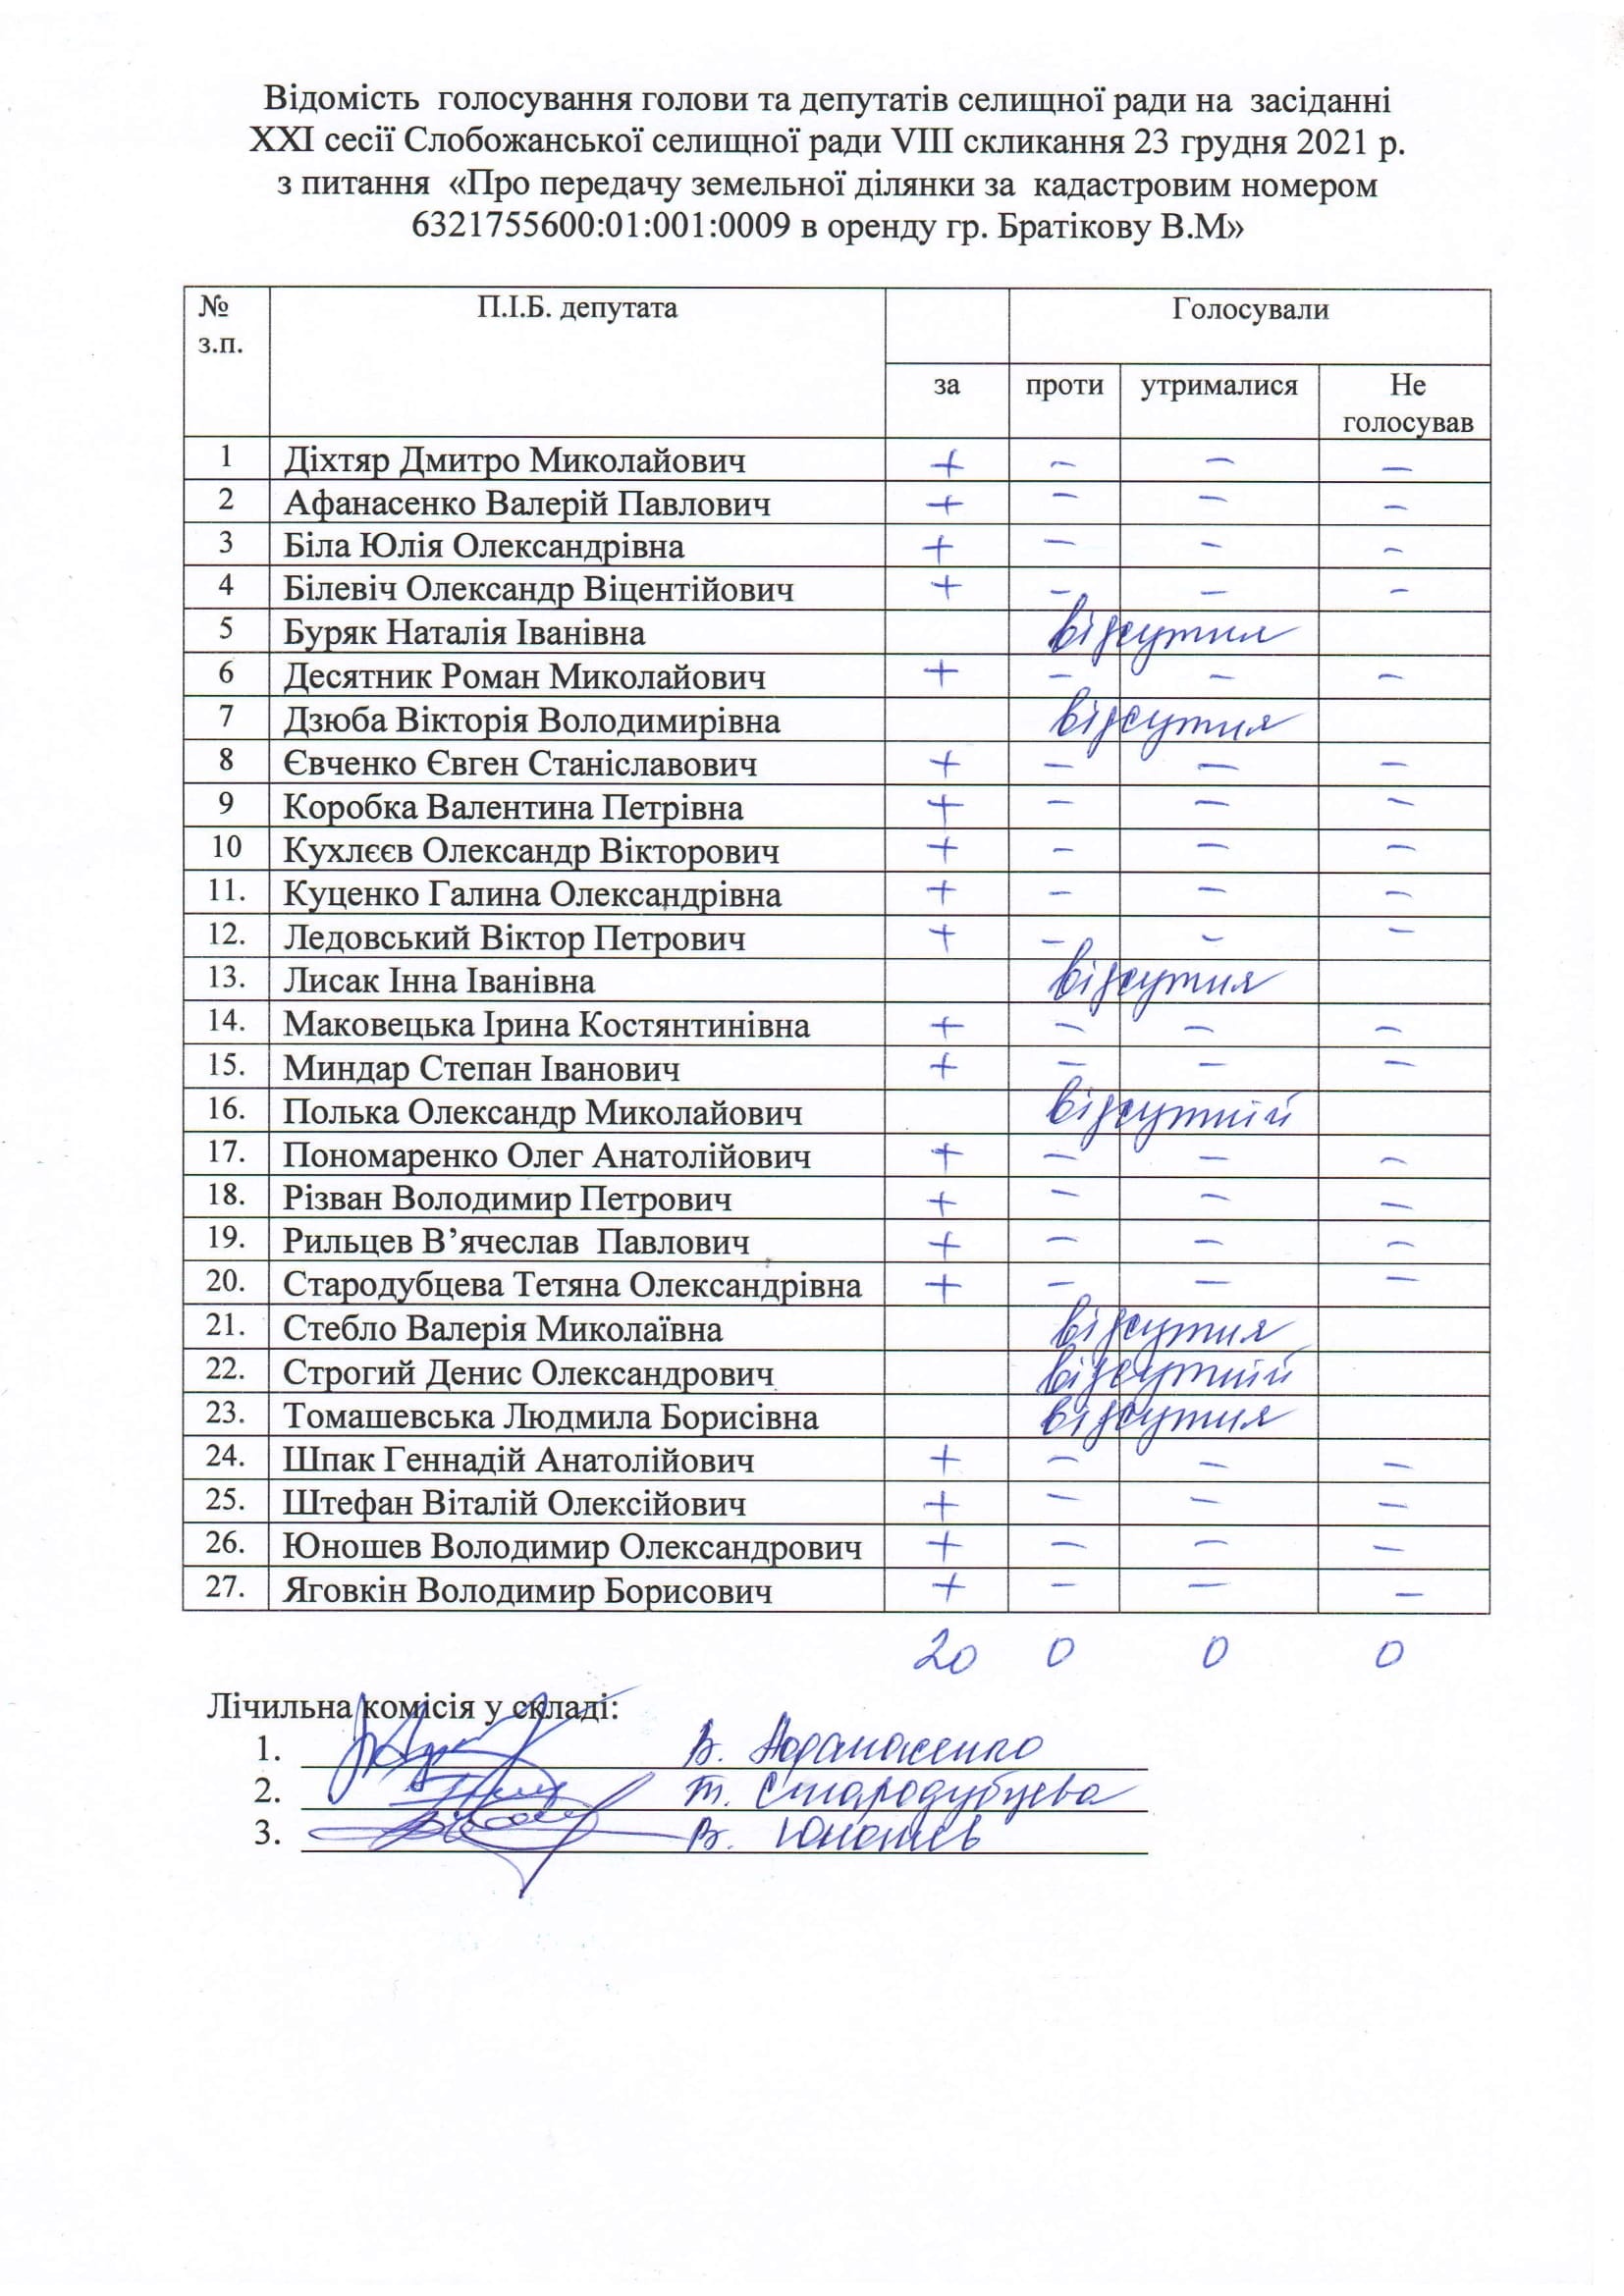 Відомість голосування голови та депутатів селищної ради на засіданні
XXI сесії Слобожанської селищної ради VIII скликання 23 грудня 2021 р.
з питання «Про передачу земельної ділянки за кадастровим номером
6321755600:01:001:0009 в оренду гр. Братікову В.М»
№ з.п. П.І.Б. депутата Голосували
за проти утрималися Не голосував
1 Діхтяр Дмитро Миколайович + – – –
2 Афанасенко Валерій Павлович + – – –
3 Біла Юлія Олександрівна + – – –
4 Білевіч Олександр Віцентійович + – – –
5 Буряк Наталія Іванівна відсутня
6 Десятник Роман Миколайович + – – –
7 Дзюба Вікторія Володимирівна відсутня
8 Євченко Євген Станіславович + – – –
9 Коробка Валентина Петрівна + – – –
10 Кухлєєв Олександр Вікторович + – – –
11. Куценко Галина Олександрівна + – – –
12. Ледовський Віктор Петрович + – – –
13. Лисак Інна Іванівна відсутня
14. Маковецька Ірина Костянтинівна + – – –
15. Миндар Степан Іванович + – – –
16. Полька Олександр Миколайович відсутній
17. Пономаренко Олег Анатолійович + – – –
18. Різван Володимир Петрович + – – –
19. Рильцев В’ячеслав Павлович + – – –
20. Стародубцева Тетяна Олександрівна + – – –
21. Стебло Валерія Миколаївна відсутня
22. Строгий Денис Олександрович відсутній
23. Томашевська Людмила Борисівна відсутня
24. Шпак Геннадій Анатолійович + – – –
25. Штефан Віталій Олексійович + – – –
26. Юношев Володимир Олександрович + – – –
27. Яговкін Володимир Борисович + – – –
20 0 0 0
Лічильна комісія у складі:
1. В. Афанасенко
2. Т. Стародубцева
3. В. Юношев